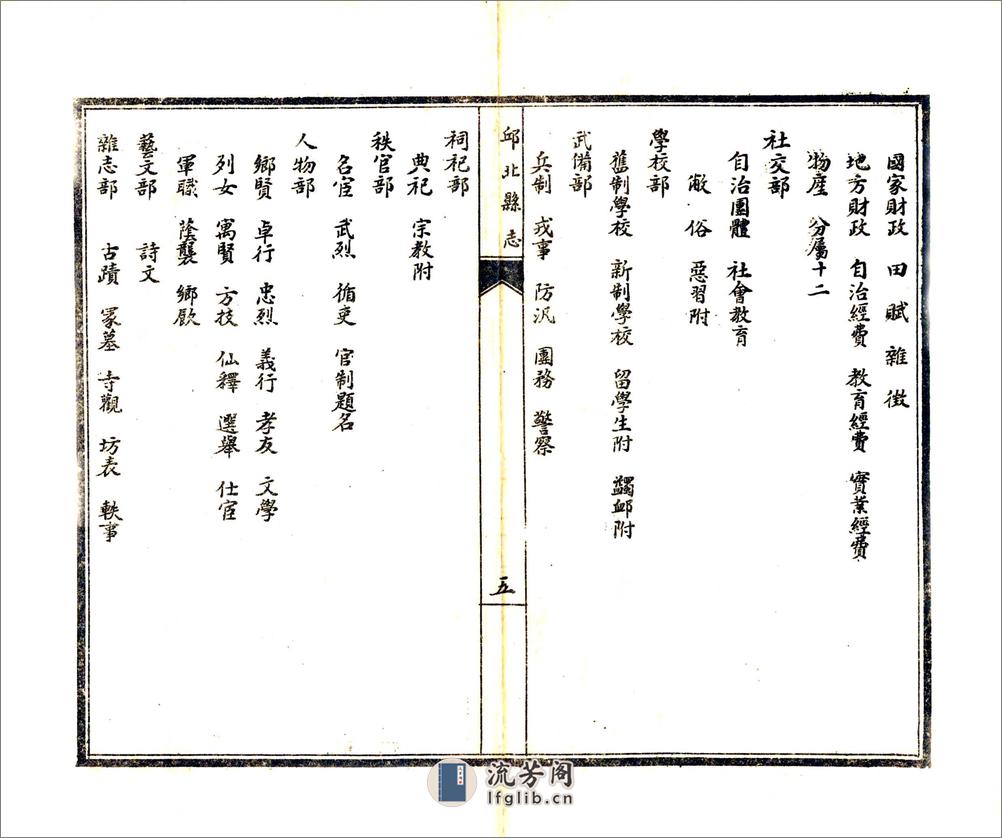 國家財政　田　賦　雜　徵
地方財政　自治經費　教育經費　實業經費
物產　分屬十二
社交部
自治團體　社會教育
敝　俗　惡習附
學校部
舊制學校　新制學校　留學生附　蠲卹附
武備部
兵制　戎事　防汛　團務　警察
邱北縣志
五
祠祀部
典祀　宗教附
秩官部
名宦　武烈　循吏　官制題名
人物部
鄉賢　卓行　忠烈　義行　孝友　文學
列女　寓賢　方技　仙釋　選舉　仕宦
軍職　蔭襲　鄉飲
藝文部　詩文
雜志部　古蹟　冢墓　寺觀　坊表　軼事
流芳阁
lfglib.cn